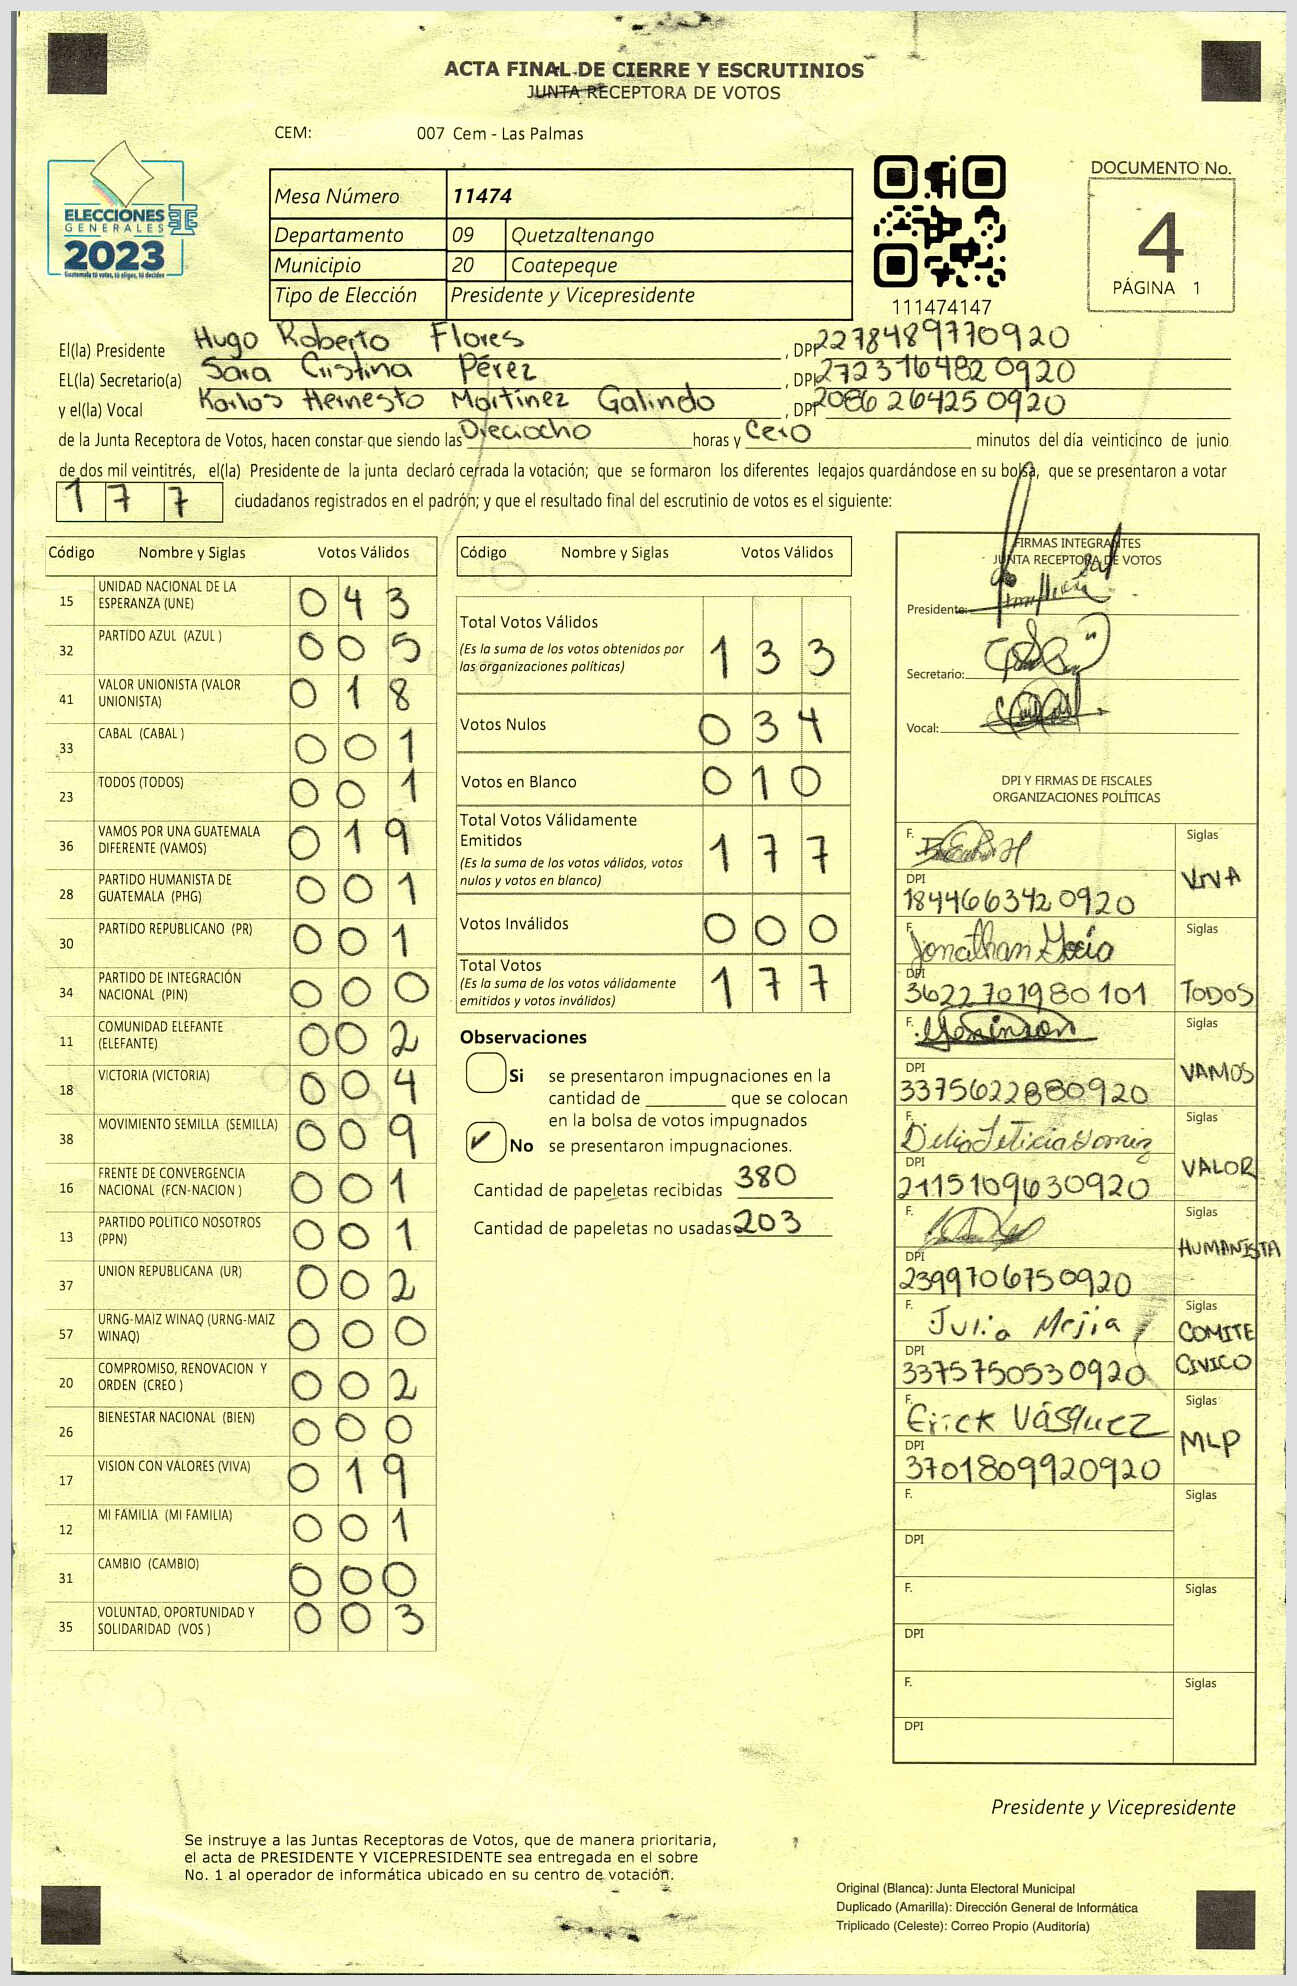 ACTA FINAL DE CIERRE Y ESCRUTINIOS
JUNTA RECEPTORA DE VOTOS
CEM: 007 Cem - Las Palmas
ELECCIONES
GENERALES
2023
Guatemala tú votas, tú eliges, tú decides
Mesa Número 11474
Departamento 09 Quetzaltenango
Municipio 20 Coatepeque
Tipo de Elección Presidente y Vicepresidente
111474147
DOCUMENTO No.
4
PÁGINA 1
El(la) Presidente Hugo Roberto Flores , DPI 2278489770920
EL(la) Secretario(a) Sara Cristina Pérez , DPI 2723164820920
y el(la) Vocal Karlos Hernesto Martínez Galindo , DPI 2086264250920
de la Junta Receptora de Votos, hacen constar que siendo las Dieciocho horas y Cero minutos del día veinticinco de junio
de dos mil veintitrés, el(la) Presidente de la junta declaró cerrada la votación; que se formaron los diferentes legajos guardándose en su bolsa, que se presentaron a votar
177 ciudadanos registrados en el padrón; y que el resultado final del escrutinio de votos es el siguiente:
Código Nombre y Siglas Votos Válidos
15 UNIDAD NACIONAL DE LA
ESPERANZA (UNE) 043
32 PARTIDO AZUL (AZUL ) 005
41 VALOR UNIONISTA (VALOR
UNIONISTA) 018
33 CABAL (CABAL ) 001
23 TODOS (TODOS) 001
36 VAMOS POR UNA GUATEMALA
DIFERENTE (VAMOS) 019
28 PARTIDO HUMANISTA DE
GUATEMALA (PHG) 001
30 PARTIDO REPUBLICANO (PR) 001
34 PARTIDO DE INTEGRACIÓN
NACIONAL (PIN) 000
11 COMUNIDAD ELEFANTE
(ELEFANTE) 002
18 VICTORIA (VICTORIA) 004
38 MOVIMIENTO SEMILLA (SEMILLA) 009
16 FRENTE DE CONVERGENCIA
NACIONAL (FCN-NACION ) 001
13 PARTIDO POLITICO NOSOTROS
(PPN) 001
37 UNION REPUBLICANA (UR) 002
57 URNG-MAIZ WINAQ (URNG-MAIZ
WINAQ) 000
20 COMPROMISO, RENOVACION Y
ORDEN (CREO ) 002
26 BIENESTAR NACIONAL (BIEN) 000
17 VISION CON VALORES (VIVA) 019
12 MI FAMILIA (MI FAMILIA) 001
31 CAMBIO (CAMBIO) 000
35 VOLUNTAD, OPORTUNIDAD Y
SOLIDARIDAD (VOS ) 003
Código Nombre y Siglas Votos Válidos
Total Votos Válidos
(Es la suma de los votos obtenidos por
las organizaciones políticas) 133
Votos Nulos 034
Votos en Blanco 010
Total Votos Válidamente
Emitidos
(Es la suma de los votos válidos, votos
nulos y votos en blanco) 177
Votos Inválidos 000
Total Votos
(Es la suma de los votos válidamente
emitidos y votos inválidos) 177
Observaciones
Si se presentaron impugnaciones en la
cantidad de ________ que se colocan
en la bolsa de votos impugnados
✓ No se presentaron impugnaciones.
Cantidad de papeletas recibidas 380
Cantidad de papeletas no usadas 203
FIRMAS INTEGRANTES
JUNTA RECEPTORA DE VOTOS
Presidente:
Secretario:
Vocal:
DPI Y FIRMAS DE FISCALES
ORGANIZACIONES POLÍTICAS
F. Siglas
VIVA
DPI
1844663420920
F. Jonathan Siglas
DPI
3622701980101 TODOS
F. Siglas
DPI VAMOS
3375622880920
F. Delia Leticia Siglas
DPI VALOR
2115109630920
F. Siglas
HUMANISTA
DPI
2399706750920
F. Julia Mejia Siglas
COMITE
DPI CIVICO
3375750530920
F. Erick Vásquez Siglas
MLP
DPI
3701809920920
F. Siglas
DPI
F. Siglas
DPI
F. Siglas
DPI
Presidente y Vicepresidente
Se instruye a las Juntas Receptoras de Votos, que de manera prioritaria,
el acta de PRESIDENTE Y VICEPRESIDENTE sea entregada en el sobre
No. 1 al operador de informática ubicado en su centro de votación.
Original (Blanca): Junta Electoral Municipal
Duplicado (Amarilla): Dirección General de Informática
Triplicado (Celeste): Correo Propio (Auditoría)